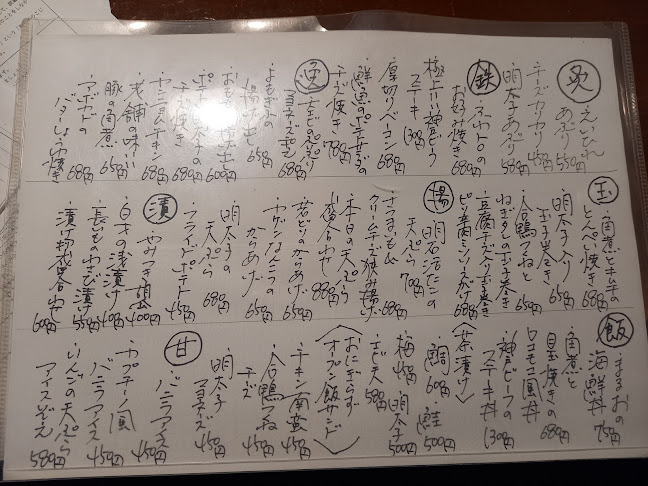 炙
えいひれ
あぶり
550円
明太子あぶり
580円
チーズカリカリ
450円
鉄
お好み焼き
680円
極上神戸ビーフ
ステーキ
1300円
厚切りベーコン
680円
チーズ焼き
780円
マヨネーズ
680円
よもぎ麩の
揚げ出し
650円
おもち
600円
ポテト明太子の
チーズ焼き
680円
ヤンニョムチキン
680円
老舗の味
豚の角煮
680円
アボカドの
バターしょうゆ焼き
680円
玉
角煮とキムチの
とんぺい焼き
680円
明太子入り
玉子巻き
650円
合鴨つくね
650円
ねぎの玉子巻き
豆腐
680円
揚
明石活だこの
天ぷら
700円
さつまいも
クリームチーズ挟み揚げ
本日の天ぷら
盛合わせ
880円
若どりのからあげ
650円
ヤゲンなんこつの
からあげ
650円
明太子の
天ぷら
680円
フライドポテト
450円
漬
やみつき
400円
白才の浅漬け
400円
長いものわさび漬け
550円
漬け物盛合わせ
600円
飯
まるおの
海鮮丼
750円
角煮と
目玉焼きの
ロコモコ風丼
680円
神戸ビーフの
ステーキ丼
1300円
〈茶漬け〉
鯛
600円
鮭
500円
梅
450円
明太子
500円
エビ天
580円
〈おにぎらず
オープン飯サンド〉
チキン南蛮
450円
合鴨つくね
チーズ
450円
明太子
マヨネーズ
450円
甘
バニラアイス
450円
カプチーノ風
バニラアイス
450円
りんごの天ぷら
アイスぞえ
580円